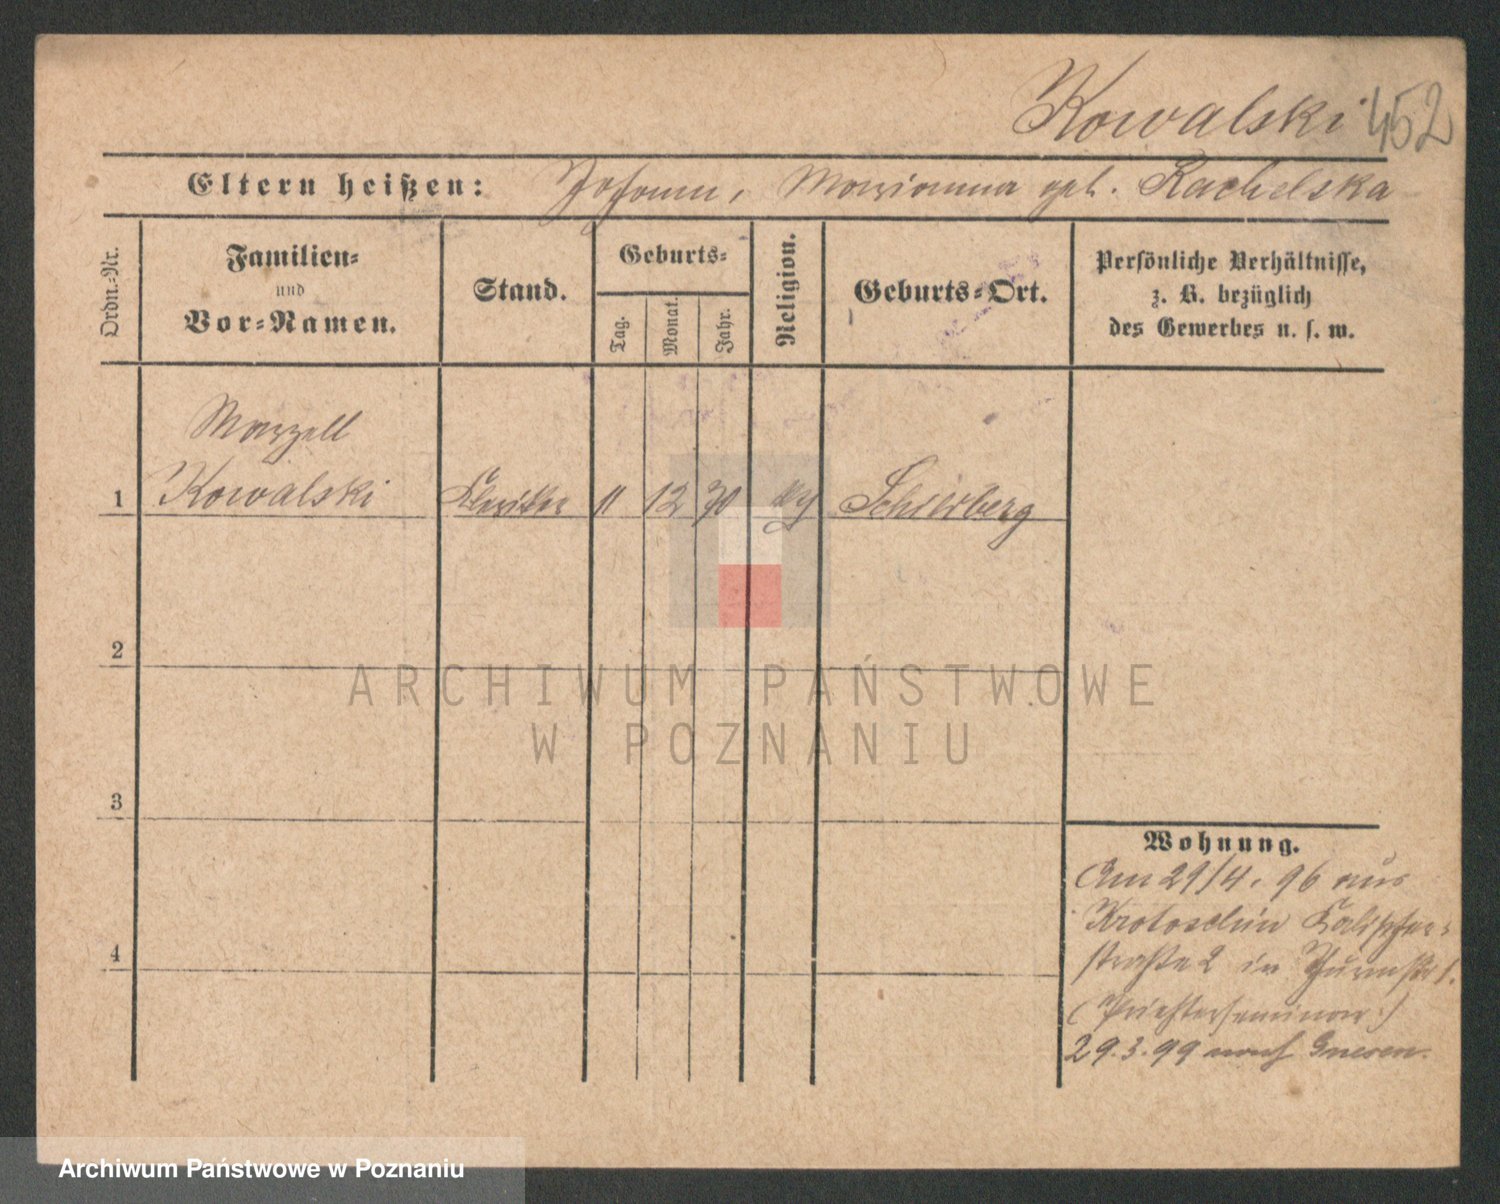 Kowalski 452
Eltern heißen: Johann, Marianna geb. Rachelska
Ordn.-Nr.
Familien-
und
Vor-Namen.
Stand.
Geburts-
Tag.
Monat.
Jahr.
Religion.
Geburts-Ort.
Persönliche Verhältnisse,
z. B. bezüglich
des Gewerbes u. s. w.
Marzell
1 Kowalski Kleriker 11 12 70 Schildberg
2
3
4
Wohnung.
Am 29/4. 96 aus
Krotoschin
straße 2 in Thurmstr 1.
(Priesterseminar.)
29.3.99 nach Gnesen.
ARCHIWUM PAŃSTWOWE
W POZNANIU
Archiwum Państwowe w Poznaniu